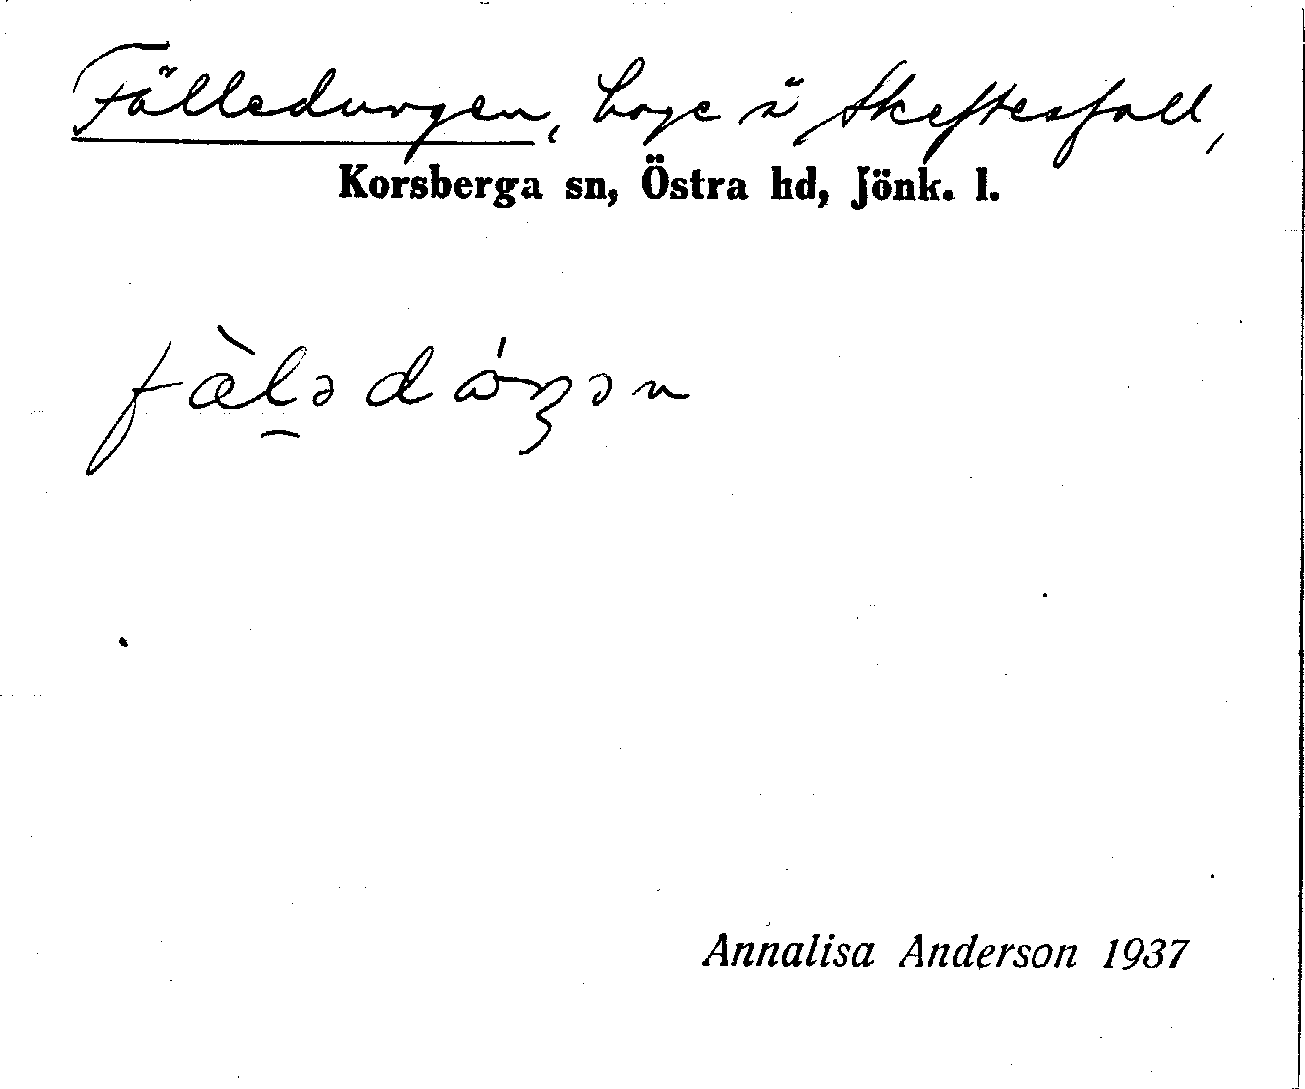 Fälledungen, hage i Skeftesfall,
Korsberga sn, Östra hd, Jönk. l.
Annalisa Anderson 1937